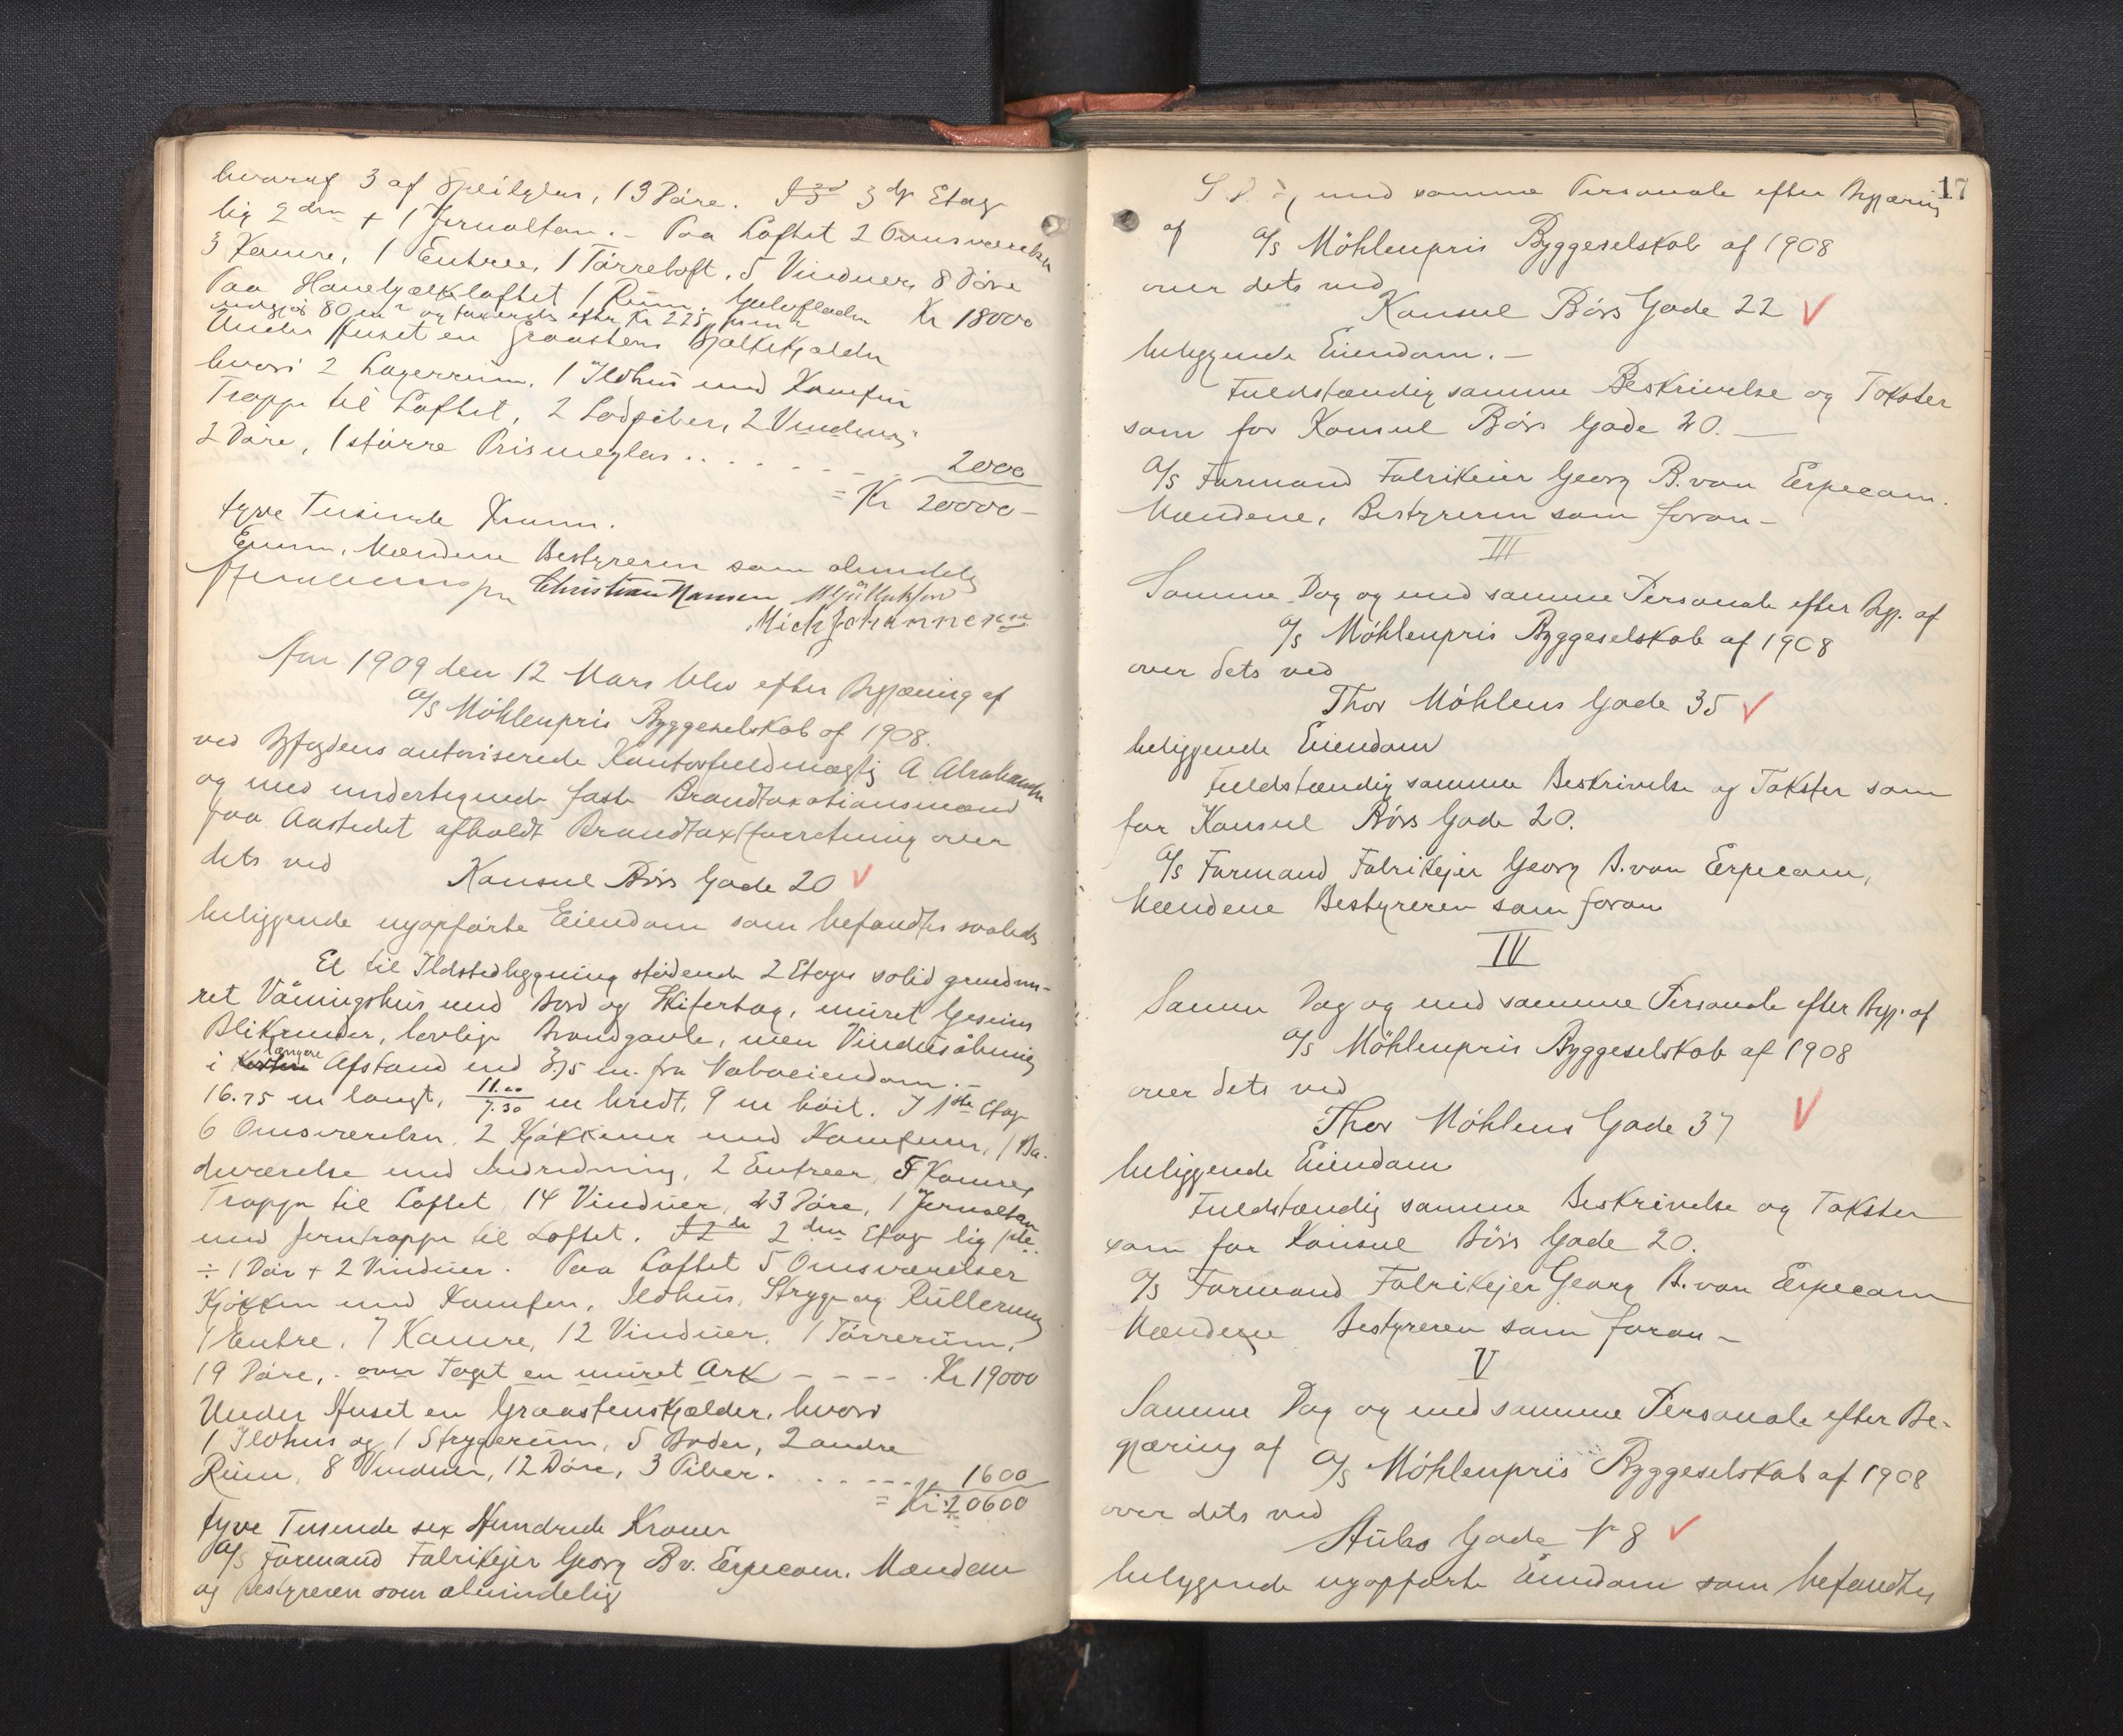 hvoraf 3 af Speilglas, 13 Døre. I 3d 3die Etage
lig 2den + 1 Jernaltan. – Paa Loftet 2 Omsværelser
3 Kamre, 1 Entree, 1 Tørreloft, 5 Vinduer, 8 Døre
Paa Hanebjælkeloftet 1 Rum. Gulvfladen Kr 18000
udgjør 80 m² og taxeres efter Kr 225 pr m²
Under Huset en Graastens Bjælkekjælder
hvori 2 Lagerrum, 1 Ildhus med Komfur
Trappe til Loftet, 2 Lodpiber, 2 Vinduer,
2 Døre, 1 større Prismeglas . . . . . . 2000
= Kr 20000 –
tyve Tusinde Kroner.
Eieren, Mændene Bestyreren som almindelig
Christian Hansen
Mich Johannesen
Aar 1909 den 12 Mars blev efter Begjæring af
A/S Möhlenpris Byggeselskab af 1908.
ved Byfogdens autoriserede Kontorfuldmægtig A. Abrahamsen
og med undertegnede faste Brandtaxationsmænd
paa Aastedet afholdt Brandtaxtforretning over
dets ved Konsul Børs Gade 20 ✓
beliggende nyopførte Eiendom som befandtes saaledes
Et til Ildstedbygning stødende 2 Etages solid grundmu-
ret Vaaningshus med Bord og Skifertag, muret Gesims
Blikrender, lovlige Brandgavle, men Vinduesåbning
i kortere længere Afstand end 3.75 m. fra Naboeiendom. –
16.75 m langt, 11.00/7.30 m bredt, 9 m høit. I 1ste Etage
6 Omsværelser, 2 Kjøkkener med Komfurer, 1 Ba-
deværelse med Indredning, 2 Entreer, 5 Kamre,
Trappe til Loftet 14 Vinduer, 23 Døre, 1 Jernaltan
med Jerntrappe til Loftet. I 2de 2den Etage lig 1ste.
÷ 1 Dør + 2 Vinduer. Paa Loftet 5 Omsværelser
Kjøkken med Komfur, Ildhus, Stryge og Rullerum
1 Entre, 7 Kamre, 12 Vinduer, 1 Tørrerum,
19 Døre, . over Taget en muret Ark – – – – . Kr 19000
Under Huset en Graastenskjælder, hvori
1 Ildhus og 1 Strygerum, 5 Boder, 2 andre
Rum, 8 Vinduer, 12 Døre, 3 Piber. . . . . . 1600
= Kr 20600
tyve Tusende sex Hundrede Kroner
A/S Formand Fabrikejer Georg B v. Erpecom. Mændene
og Bestyreren som almindelig
17
og med samme Personale efter Begjæring
af A/S Möhlenpris Byggeselskab af 1908
over dets ved
Konsul Børs Gade 22 ✓
beliggende Eiendom. –
Fuldstændig samme Beskrivelse og Takster
som for Konsul Børs Gade 20. –
A/S Formand Fabrikeier Georg B. von Erpecom.
Mændene, Bestyreren som foran –
III
Samme Dag og med samme Personale efter Begj. af
A/S Möhlenpris Byggeselskab af 1908
over dets ved
Thor Möhlens Gade 35 ✓
beliggende Eiendom
Fuldstændig samme Beskrivelse og Takster som
for Konsul Børs Gade 20.
A/S Formand Fabrikejer Georg B. von Erpecom,
Mændene Bestyreren som foran
IV
Samme Dag og med samme Personale efter Begj. af
A/S Möhlenpris Byggeselskab af 1908
over dets ved
Thor Möhlens Gade 37 ✓
beliggende Eiendom
Fuldstændig samme Beskrivelse og Takster
som for Konsul Børs Gade 20.
A/S Formand Fabrikejer Georg B. von Erpecom
Mændene Bestyreren som foran –
V
Samme Dag og med samme Personale efter Be-
gjæring af A/S Möhlenpris Byggeselskab af 1908
over dets ved
Stubs Gade № 8 ✓
beliggende nyopførte Eiendom som befandtes